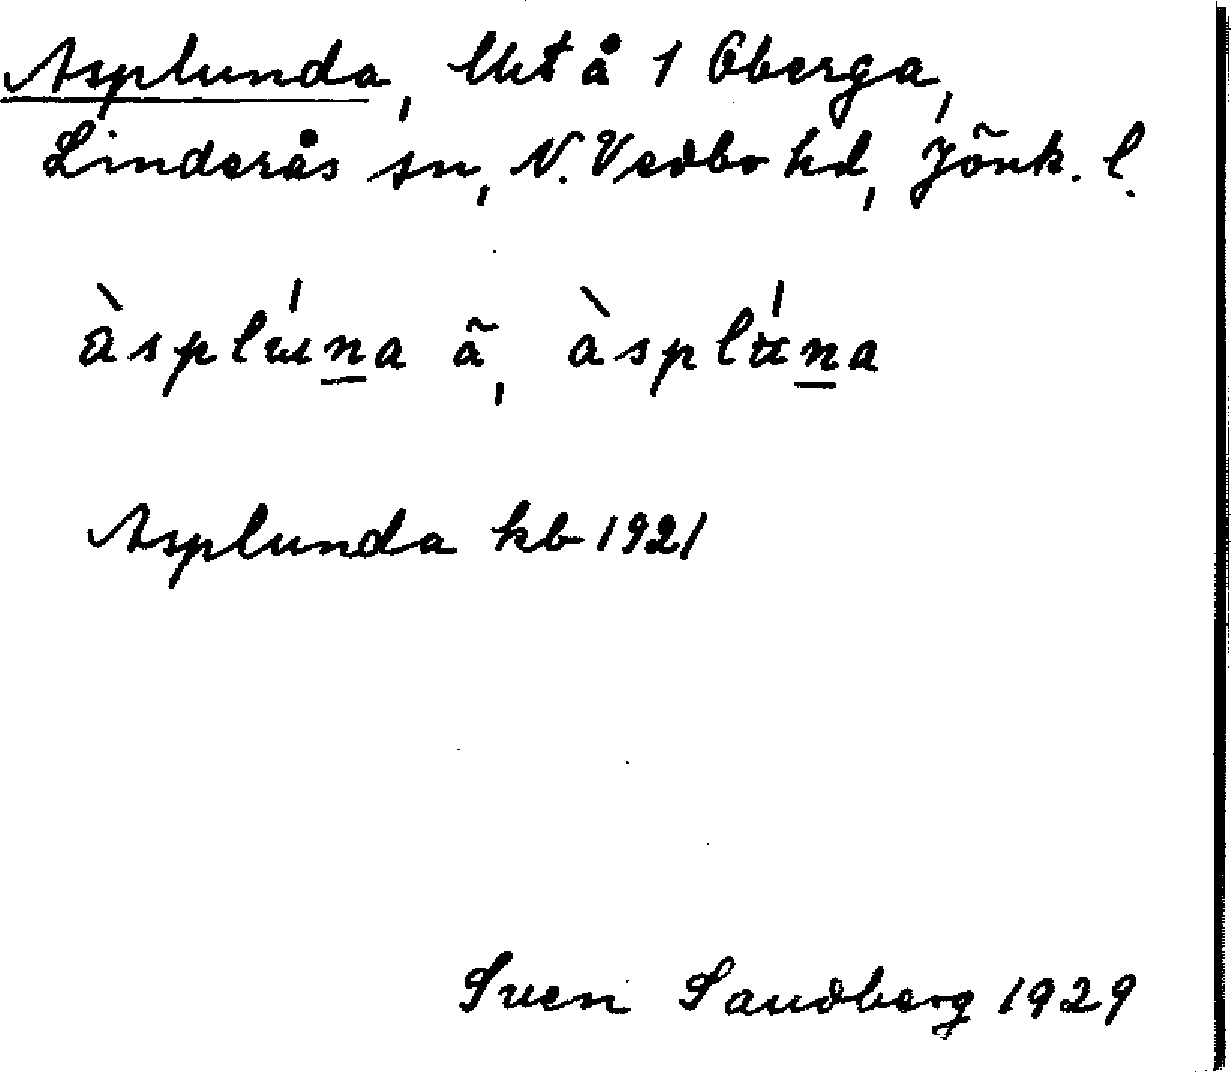 Asplunda, lht å 1 Oberga,
Linderås sn, N. Vedbo hd, Jönk. l.
àsplúna ä, àsplúna
Asplunda kb 1921
Sven Sandberg 1929